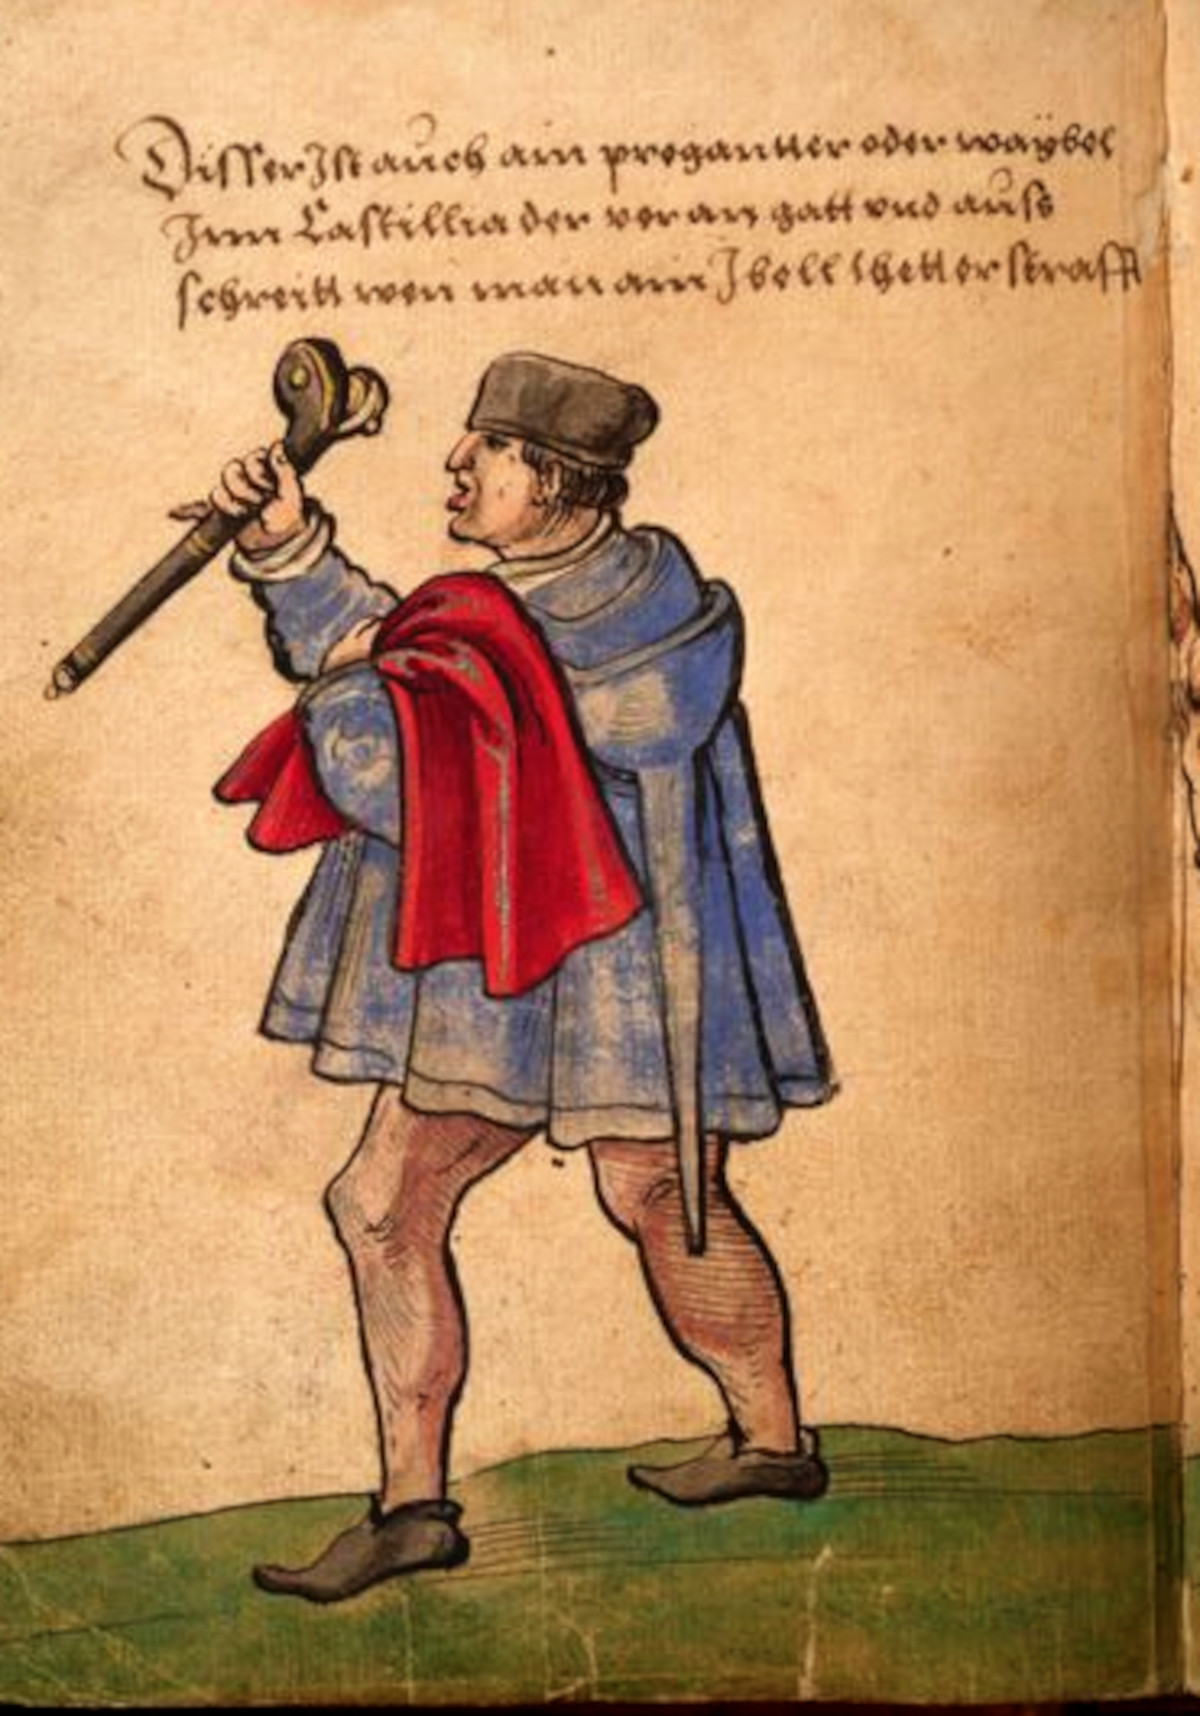 Disser Ist auch ain progantter oder waÿbel
Inn Castillia der voran gatt vnd auss
schreitt wen man ain Ibell thetter strafft